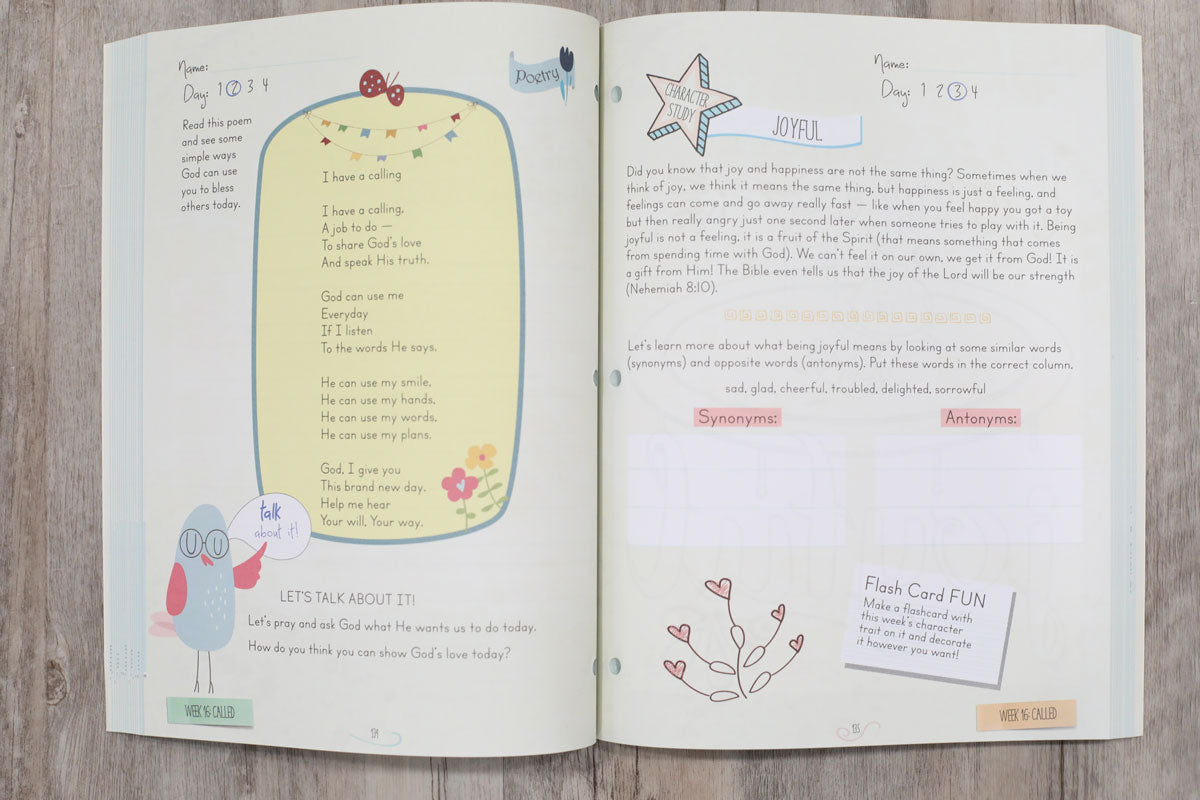 Name:
Day: 1 2 3 4
Poetry
Read this poem
and see some
simple ways
God can use
you to bless
others today.
I have a calling
I have a calling,
A job to do —
To share God's love
And speak His truth.
God can use me
Everyday
If I listen
To the words He says.
He can use my smile,
He can use my hands,
He can use my words,
He can use my plans.
God, I give you
This brand new day.
Help me hear
Your will, Your way.
talk
about it!
LET'S TALK ABOUT IT!
Let's pray and ask God what He wants us to do today.
How do you think you can show God's love today?
WEEK 16: CALLED
134
Name:
Day: 1 2 3 4
CHARACTER
STUDY
JOYFUL
Did you know that joy and happiness are not the same thing? Sometimes when we
think of joy, we think it means the same thing, but happiness is just a feeling, and
feelings can come and go away really fast — like when you feel happy you got a toy
but then really angry just one second later when someone tries to play with it. Being
joyful is not a feeling, it is a fruit of the Spirit (that means something that comes
from spending time with God). We can't feel it on our own, we get it from God! It is
a gift from Him! The Bible even tells us that the joy of the Lord will be our strength
(Nehemiah 8:10).
Let's learn more about what being joyful means by looking at some similar words
(synonyms) and opposite words (antonyms). Put these words in the correct column.
sad, glad, cheerful, troubled, delighted, sorrowful
Synonyms:
Antonyms:
Flash Card FUN
Make a flashcard with
this week's character
trait on it and decorate
it however you want!
WEEK 16: CALLED
135